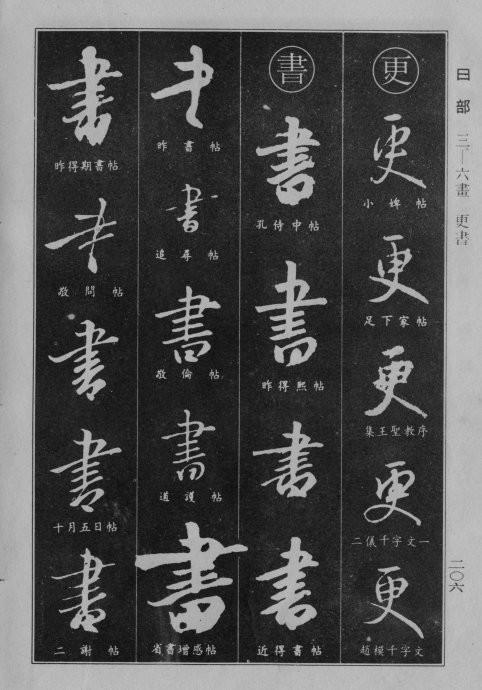 日部 三—六畫 更書
二〇六
更
更
小婢帖
更
足下家帖
更
集王聖教序
更
二儀千字文一
更
趙模千字文
書
書
孔侍中帖
書
昨得熙帖
書
書
近得書帖
書
昨書帖
書
追尋帖
書
敬倫帖
書
道護帖
書
省書增感帖
書
昨得期書帖
書
敬問帖
書
書
十月五日帖
書
二謝帖